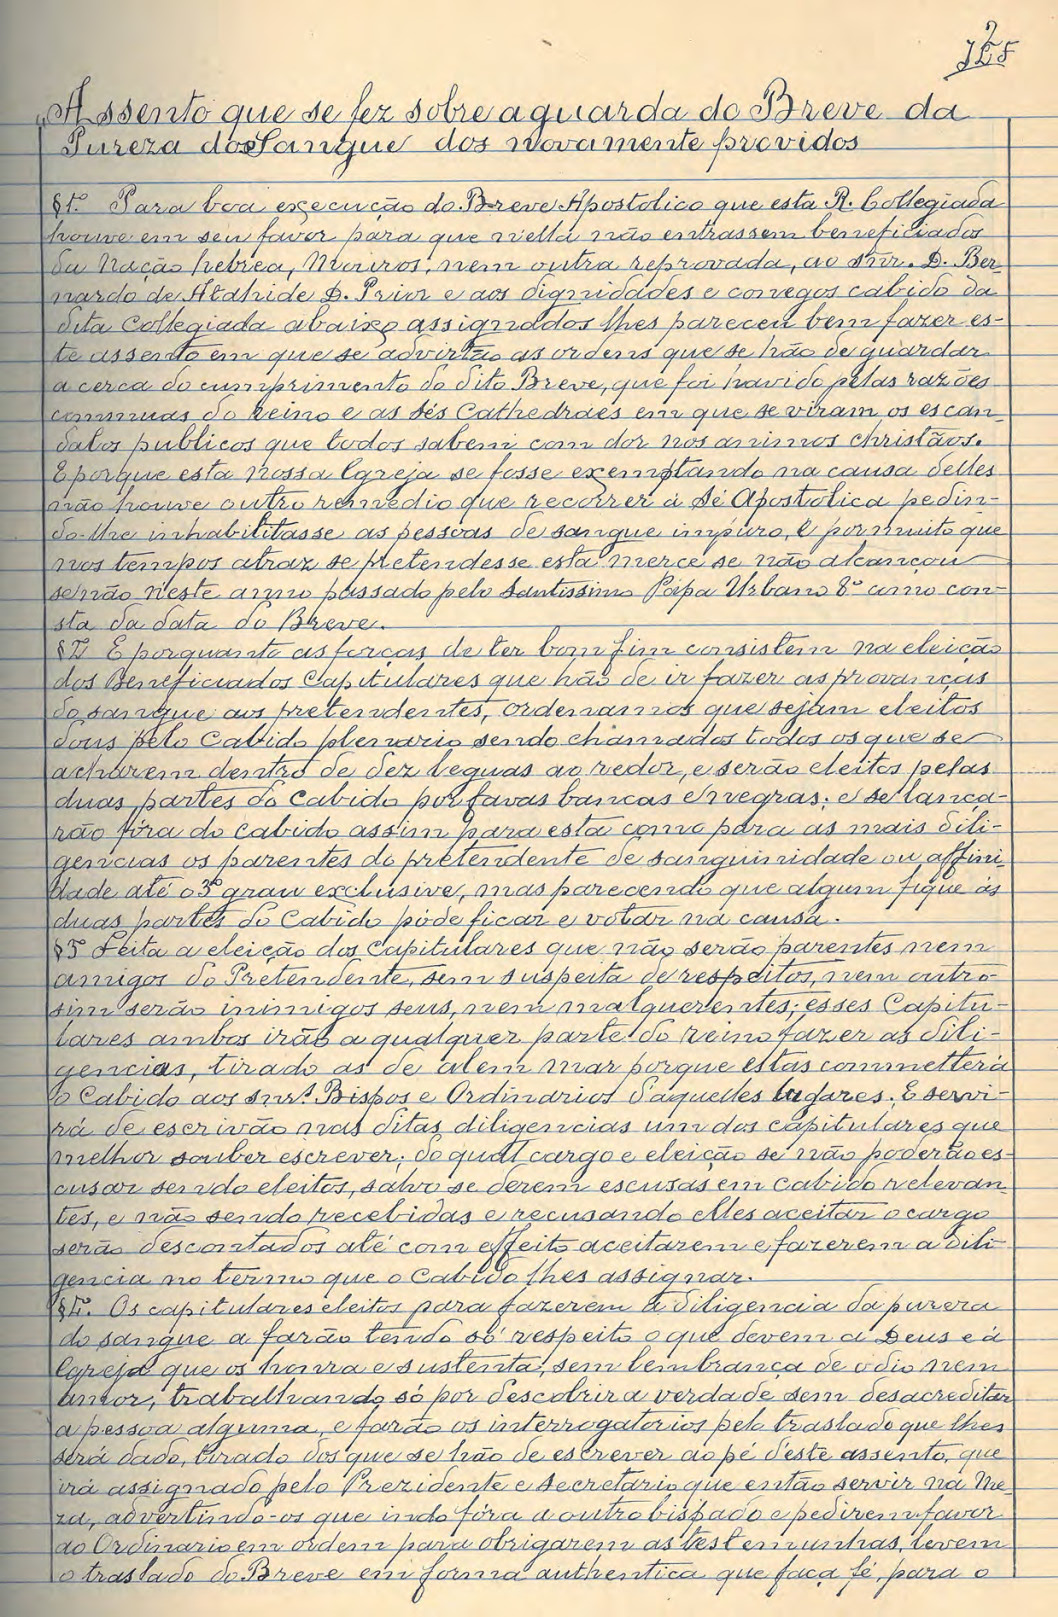 Assento que se fez sobre a guarda do Breve da
Pureza do Sangue dos novamente providos
§1º Para boa execução do Breve Apostolico que esta R. Collegiada
houve em seu favor para que nella não entrassem beneficiados
da Nação hebrea, Mouros, nem outra reprovada, ao Snr. D. Ber-
nardo de Atahide D. Prior e aos dignidades e conegos cabido da
dita Collegiada abaixo assignados lhes pareceu bem fazer es-
te assento em que se advirtão as ordens que se hão de guardar
acerca do cumprimento do dito Breve, que foi havido pelas razões
communas do reino e as Sés Cathedraes em que se viram os escan-
dalos publicos que todos sabem com dor nos animos christãos.
E porque esta nossa Egreja se fosse exemptando na causa delles
não houve outro remedio que recorrer á Sé Apostolica pedin-
do-lhe inhabilitasse as pessoas de sangue impuro, e por muito que
nos tempos atraz se pretendesse esta merce se não alcançou
senão n'este anno passado pelo Santissimo Papa Urbano 8º como con-
sta da data do Breve.
§2º E porquanto as forças de ter bom fim consistem na eleição
dos Beneficiados Capitulares que hão de ir fazer as provanças
do sangue aos pretendentes, ordenamos que sejam eleitos
dous pelo Cabido plenario sendo chamados todos os que se
acharem dentro de dez leguas ao redor, e serão eleitos pelas
duas partes do Cabido por favas bancas e negras; e se lança-
rão fóra do Cabido assim para esta como para as mais dili-
gencias os parentes do pretendente de sanguinidade ou affini-
dade até o 3º grau exclusive, mas parecendo que algum fique ás
duas partes do Cabido póde ficar e votar na causa.
§3º Feita a eleição dos Capitulares que não serão parentes nem
amigos do Pretendente, sem suspeita de respeitos, nem outro-
sim serão inimigos seus, nem malquerentes; esses Capitu-
lares ambos irão a qualquer parte do reino fazer as dili-
gencias, tirado as de alem mar porque estas commetterá
o Cabido aos Snrs. Bispos e Ordinarios daquelles lugares. E servi-
rá de escrivão nas ditas diligencias um dos capitulares que
melhor souber escrever; do qual cargo e eleição se não poderão es-
cusar sendo eleitos, salvo se derem escusas em Cabido relevan-
tes, e não sendo recebidas e recusando elles aceitar o cargo
serão descontados até com effeito aceitarem e fazerem a dili-
gencia no termo que o Cabido lhes assignar.
§4º. Os capitulares eleitos para fazerem a diligencia da pureza
do sangue a farão tendo só respeito o que devem a Deus e á
Egreja que os honra e sustenta, sem lembrança de odio nem
amor, trabalhando só por descobrir a verdade sem desacreditar
a pessoa alguma, e farão os interrogatorios pelo traslado que lhes
será dado, tirado dos que se hão de escrever ao pé deste assento, que
irá assignado pelo Prezidente e secretario que então servir na Me-
za, advertindo-os que indo fóra a outro bispado e pedirem favor
ao Ordinario em ordem para obrigarem as testemunhas, levem
o traslado do Breve em forma authentica que faça fé, para o